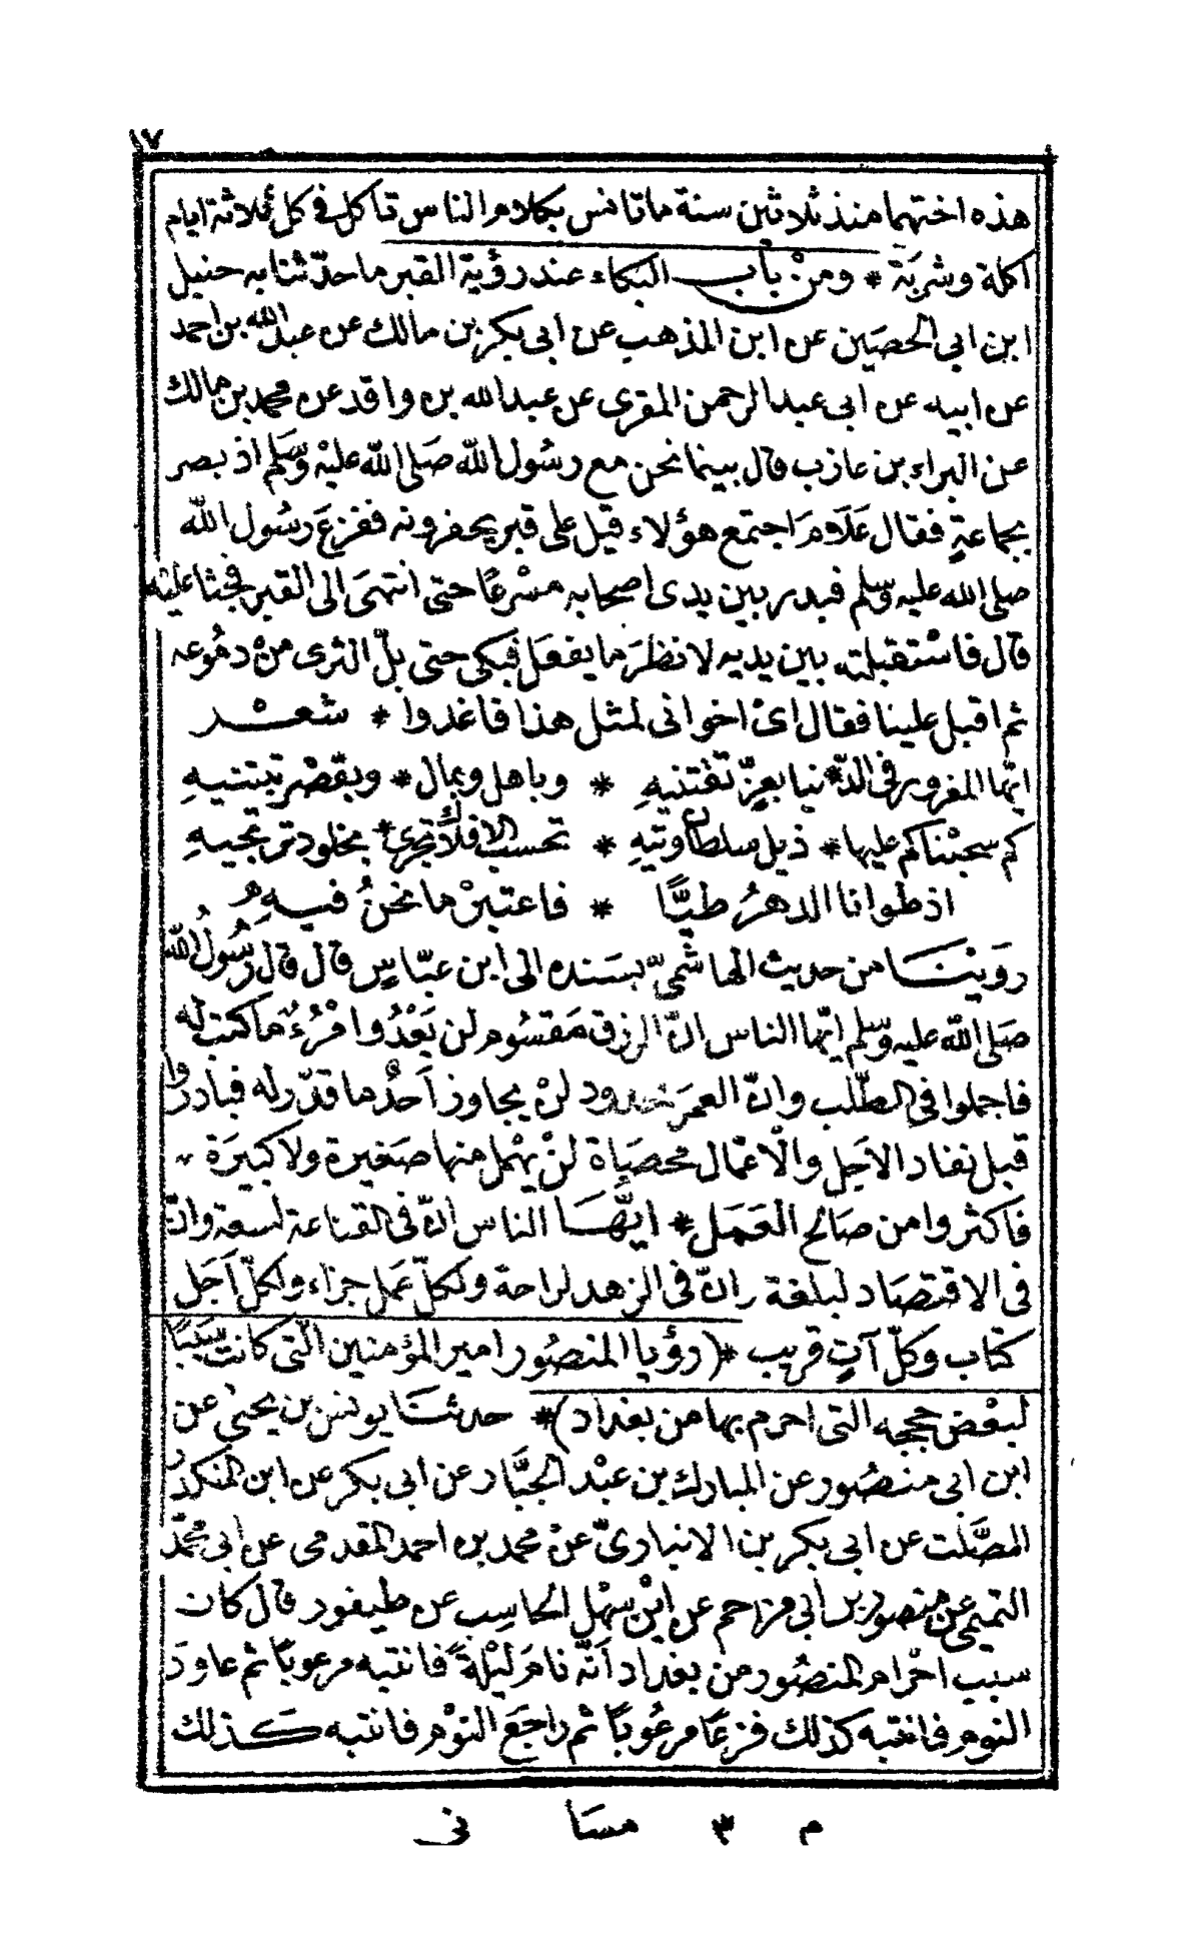 ١٧
هذه اختهما منذ ثلاثين سنة ما تانس بكلام الناس تاكل فى كل ثلاثة ايام
اكلة وشربَة * ومنْ باب البكاء عند رؤية القبر ما حدّثنا به حنبل
ابن ابى الحصَين عن ابن المذهب عن ابى بكر بن مالك عن عبد الله بن احمد
عن ابيه عن ابى عبد الرحمن المقرى عن عبد الله بن واقد عن محمد بن مالك
عن البراء بن عازب قال بينما نحن مع رسُول الله صَلى الله عليْه وسَلم اذ بصر
بجماعةٍ فقال عَلَامَ اجتمع هؤلاء قيل على قبر يحفرونه ففزعَ رسُول الله
صلى الله عليه وسلم فبدر بين يدى اصحابه مسْرعًا حتى انتهَى الى القبر فجثا عليْه
قال فاسْتقبلته بين يديه لانظرَ ما يفعَل فبكى حتى بلّ الثرى منْ دمُوعه
ثم اقبل علينا فقال اىْ اخوانى لمثل هذا فاغدوا * شعْر
ايّها المغرور فى الدّنيا بعزّ تقتنيهِ * وباهل وبمال * وبقصْر تبتنيهِ
كم سحبْناكم عليها * ذيل سلطان وتيهِ * تحسب الافلاك تجرى * بخلود ترتجيهِ
اذ طوانا الدهرُ طيًّا * فاعتبرْ ما نحنُ فيهِ
رَوَينَا من حديث الهاشمىّ بسَنده الى ابن عبّاسٍ قال قال رسُولُ الله
صَلى الله عليه وسلم ايّها الناس انّ الرزق مَقسُوم لن يَعْدُوَ امْرُءٌ ما كتب له
فاجملوا فى الطّلب وانّ العمرَ محدود لنْ يجاوز اَحدٌ ما قدّر له فبادروا
قبل نفاد الاَجل والْاعْمال محصَاة لنْ يهْمل منها صَغيرة ولا كبيرَة
فاكثروا من صَالح العَمَل * ايّهَا الناس انّ فى القناعة لسعة وانّ
فى الاقتصَاد لبلغة وانّ فى الزهد لراحة ولكلّ عَمل جزاء ولكلّ اَجَل
كتاب وكلّ آتٍ قريب * (رؤيا المنصُور امير المؤمنين الّتى كانت سَببًا
لبعْض حججه التى احرم بها من بغداد) * حدثنَا يونس بن يحيى عن
ابن ابى منصُور عن المبارك بن عبْد الجبَّار عن ابى بكر عن ابن المنكدر
المصَّلت عن ابى بكر بن الانبارىّ عنْ محمد بن احمد المقدمى عن ابى محمّد
التميمى عن منصور بن ابى مزاحم عن ابْن سَهْل الحاسِب عن طيفور قال كان
سبب احْرام المنصُور من بغداد اَنّه نامَ ليْلةً فانتبه مرعوبًا ثم عاودَ
النوم فانتبه كذلك فزعًا مرعُوبًا ثم راجَع النوْم فانتبه كَذلك
م ٣ مسَا نى